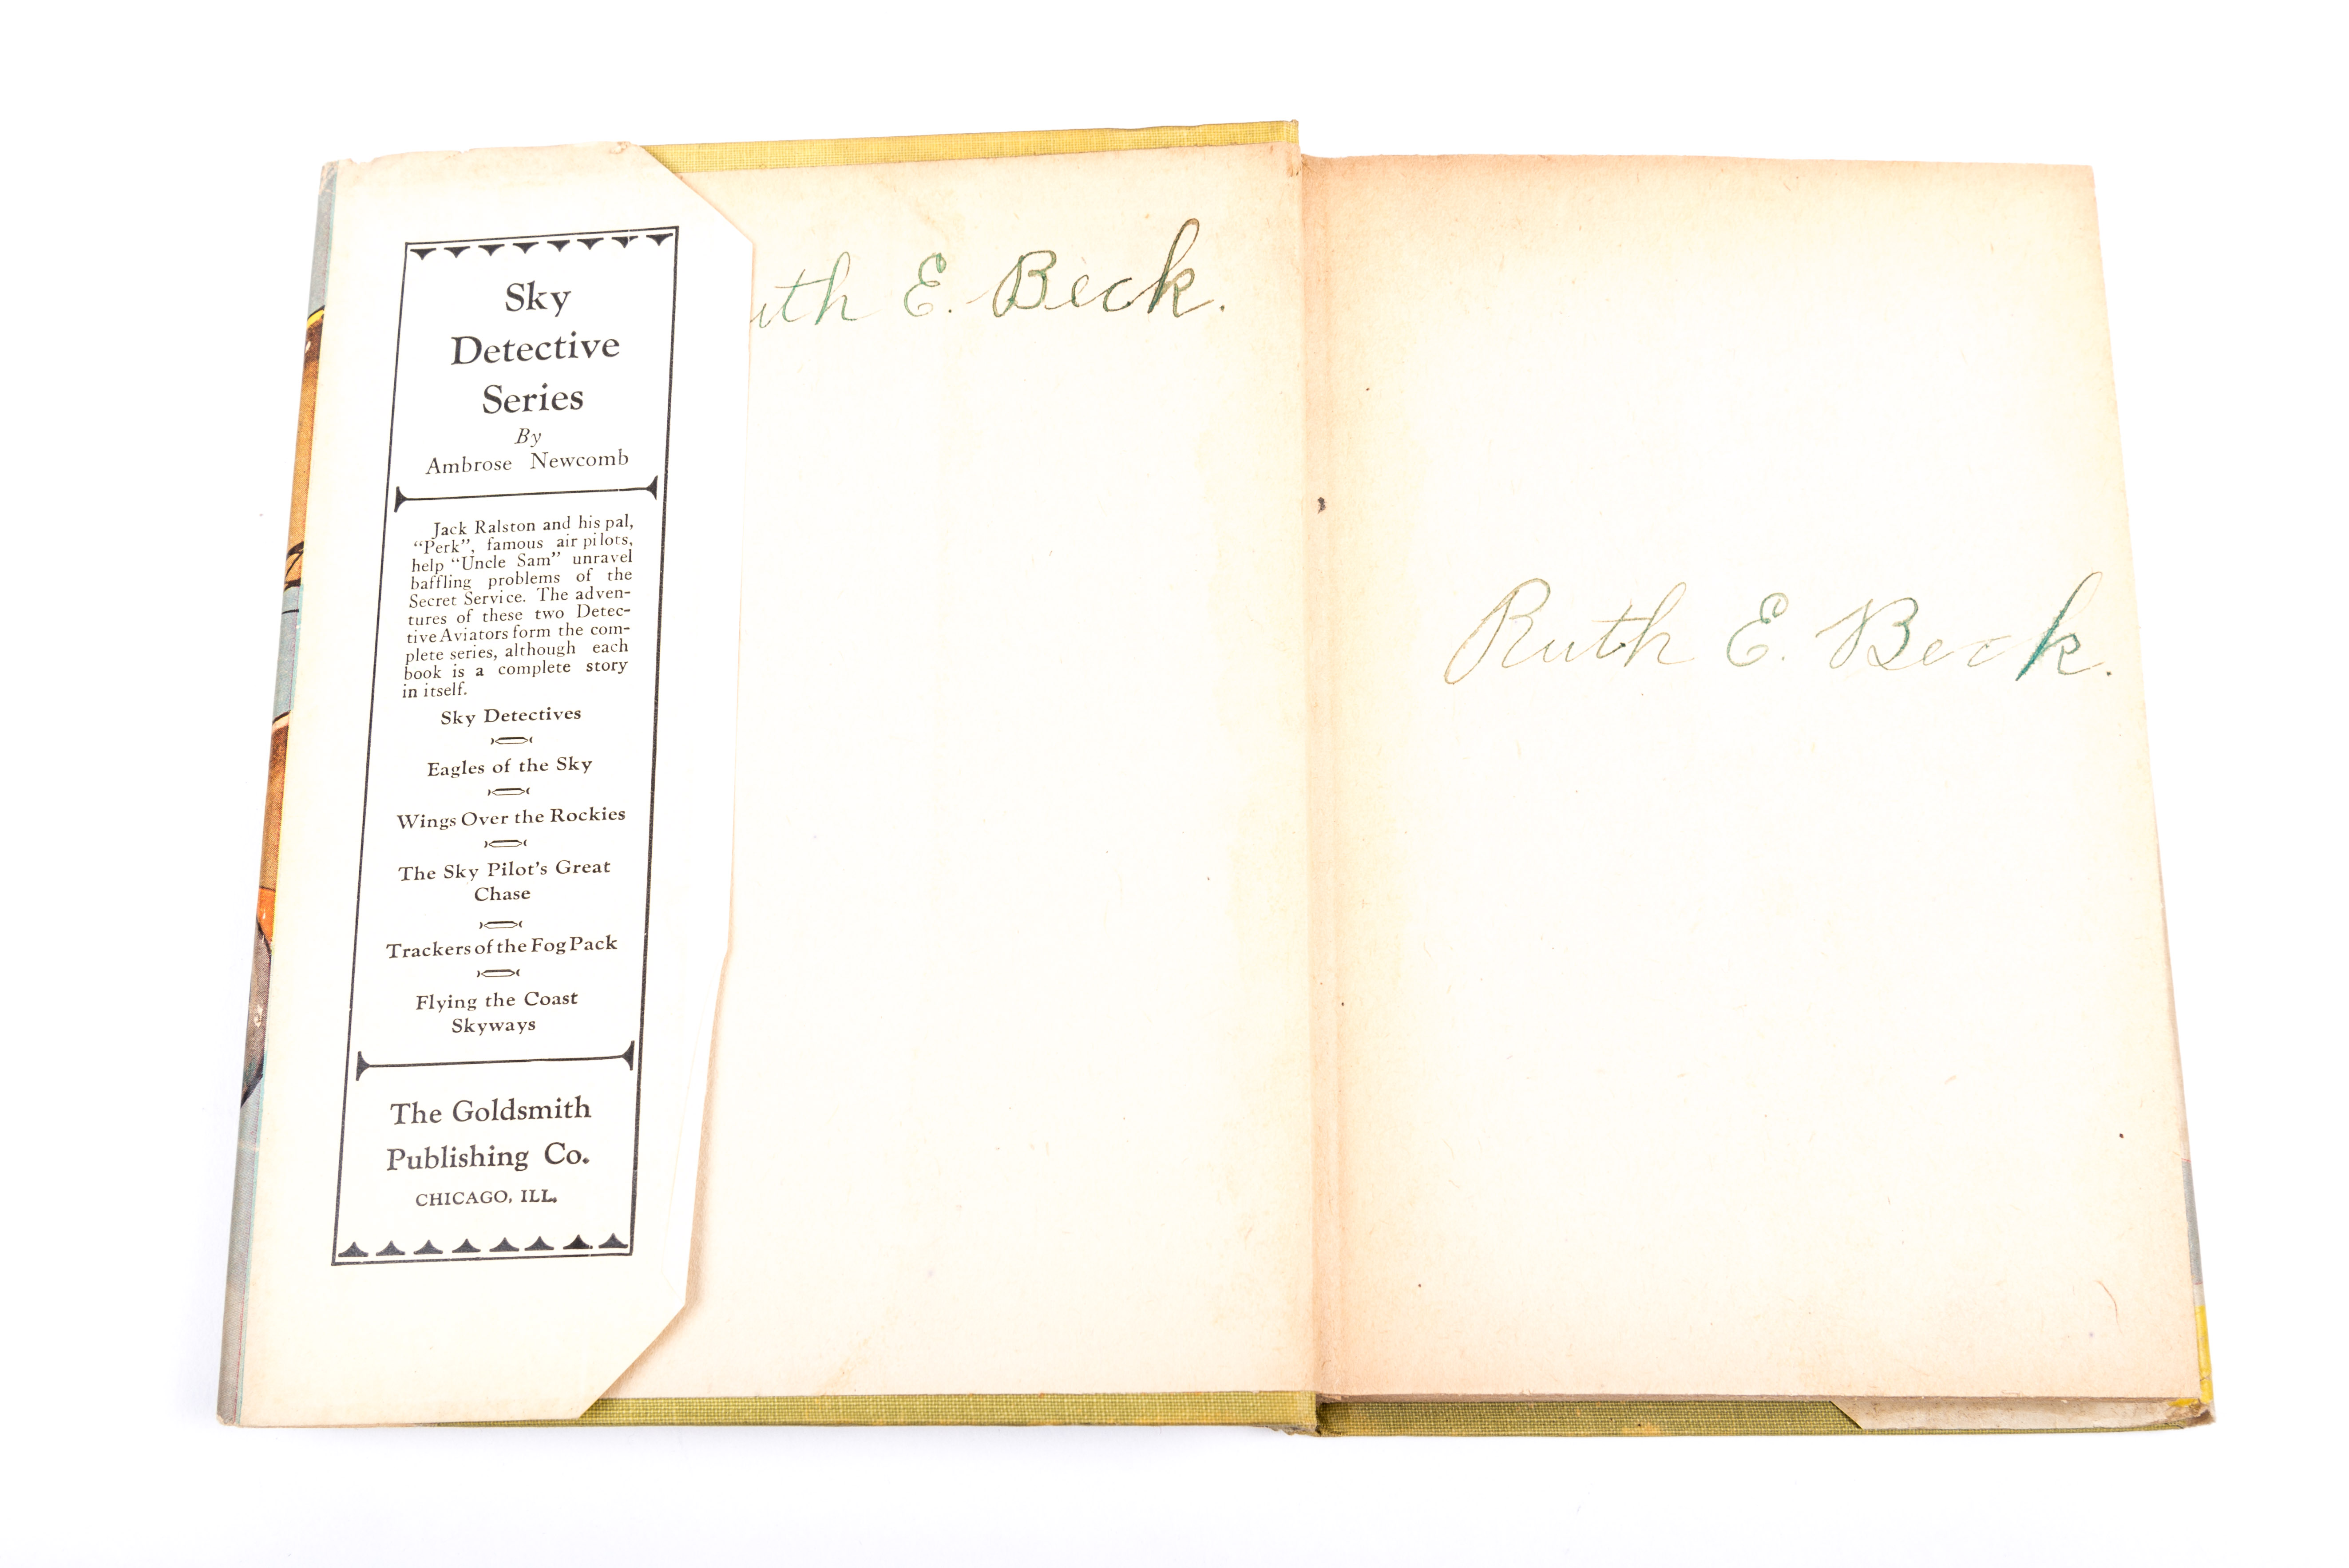 Sky
Detective
Series
By
Ambrose Newcomb
Jack Ralston and his pal,
“Perk”, famous air pilots,
help “Uncle Sam” unravel
baffling problems of the
Secret Service. The adven-
tures of these two Detec-
tive Aviators form the com-
plete series, although each
book is a complete story
in itself.
Sky Detectives
Eagles of the Sky
Wings Over the Rockies
The Sky Pilot's Great
Chase
Trackers of the Fog Pack
Flying the Coast
Skyways
The Goldsmith
Publishing Co.
CHICAGO, ILL.
uth E. Beck.
Ruth E. Beck.